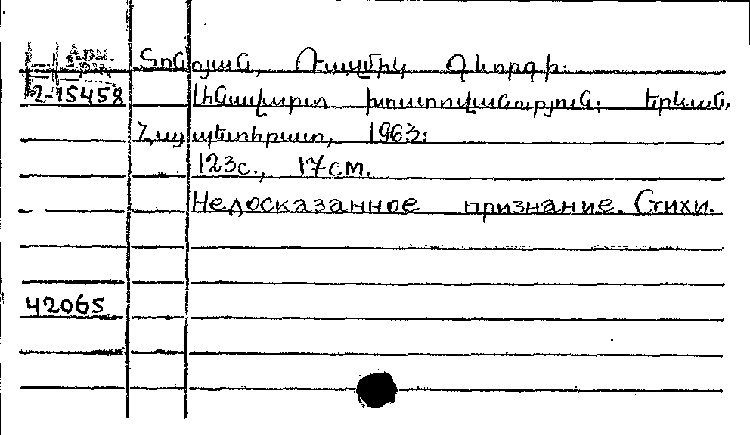 Арм.
2-15458
Տոնոյան, Ռազմիկ Գևորգի.
Անավարտ խոստովանություն: Երևան,
Հայպետհրատ, 1963:
123с., 17см.
Недосказанное признание. Стихи.
42065